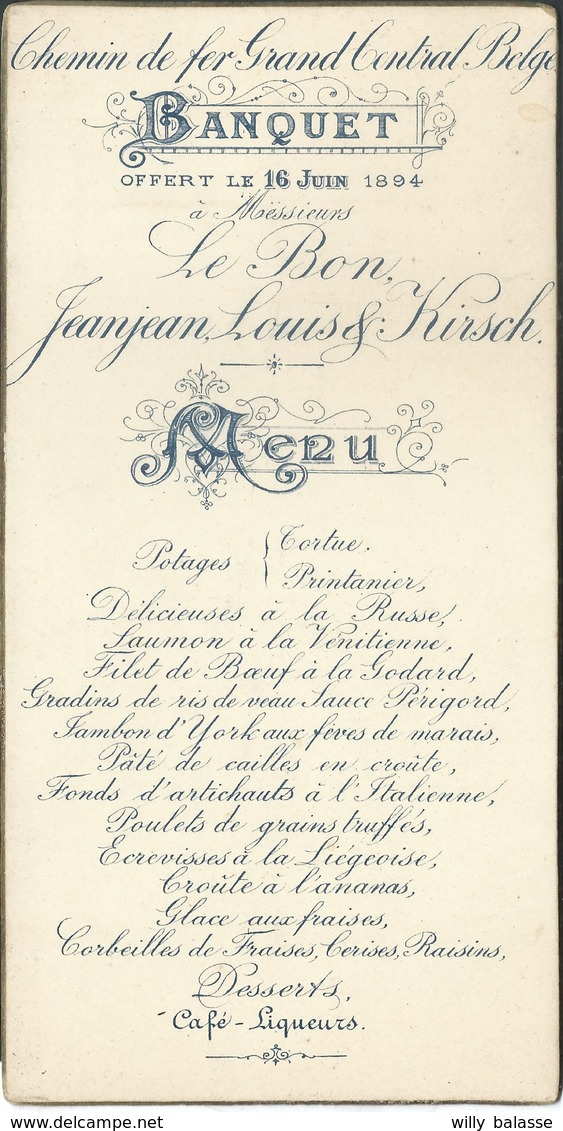 Chemin de fer Grand Central Belge
BANQUET
OFFERT LE 16 JUIN 1894
à Messieurs
Le Bon,
Jeanjean, Louis & Kirsch.
Menu
Potages { Tortue.
Printanier,
Délicieuses à la Russe,
Saumon à la Vénitienne,
Filet de Bœuf à la Godard,
Gradins de ris de veau Sauce Périgord,
Jambon d'York aux fèves de marais,
Pâté de cailles en croûte,
Fonds d'artichauts à l'Italienne,
Poulets de grains truffés,
Ecrevisses à la Liégeoise,
Croûte à l'ananas,
Glace aux fraises,
Corbeilles de Fraises, Cerises, Raisins,
Desserts,
Café - Liqueurs.
willy balasse